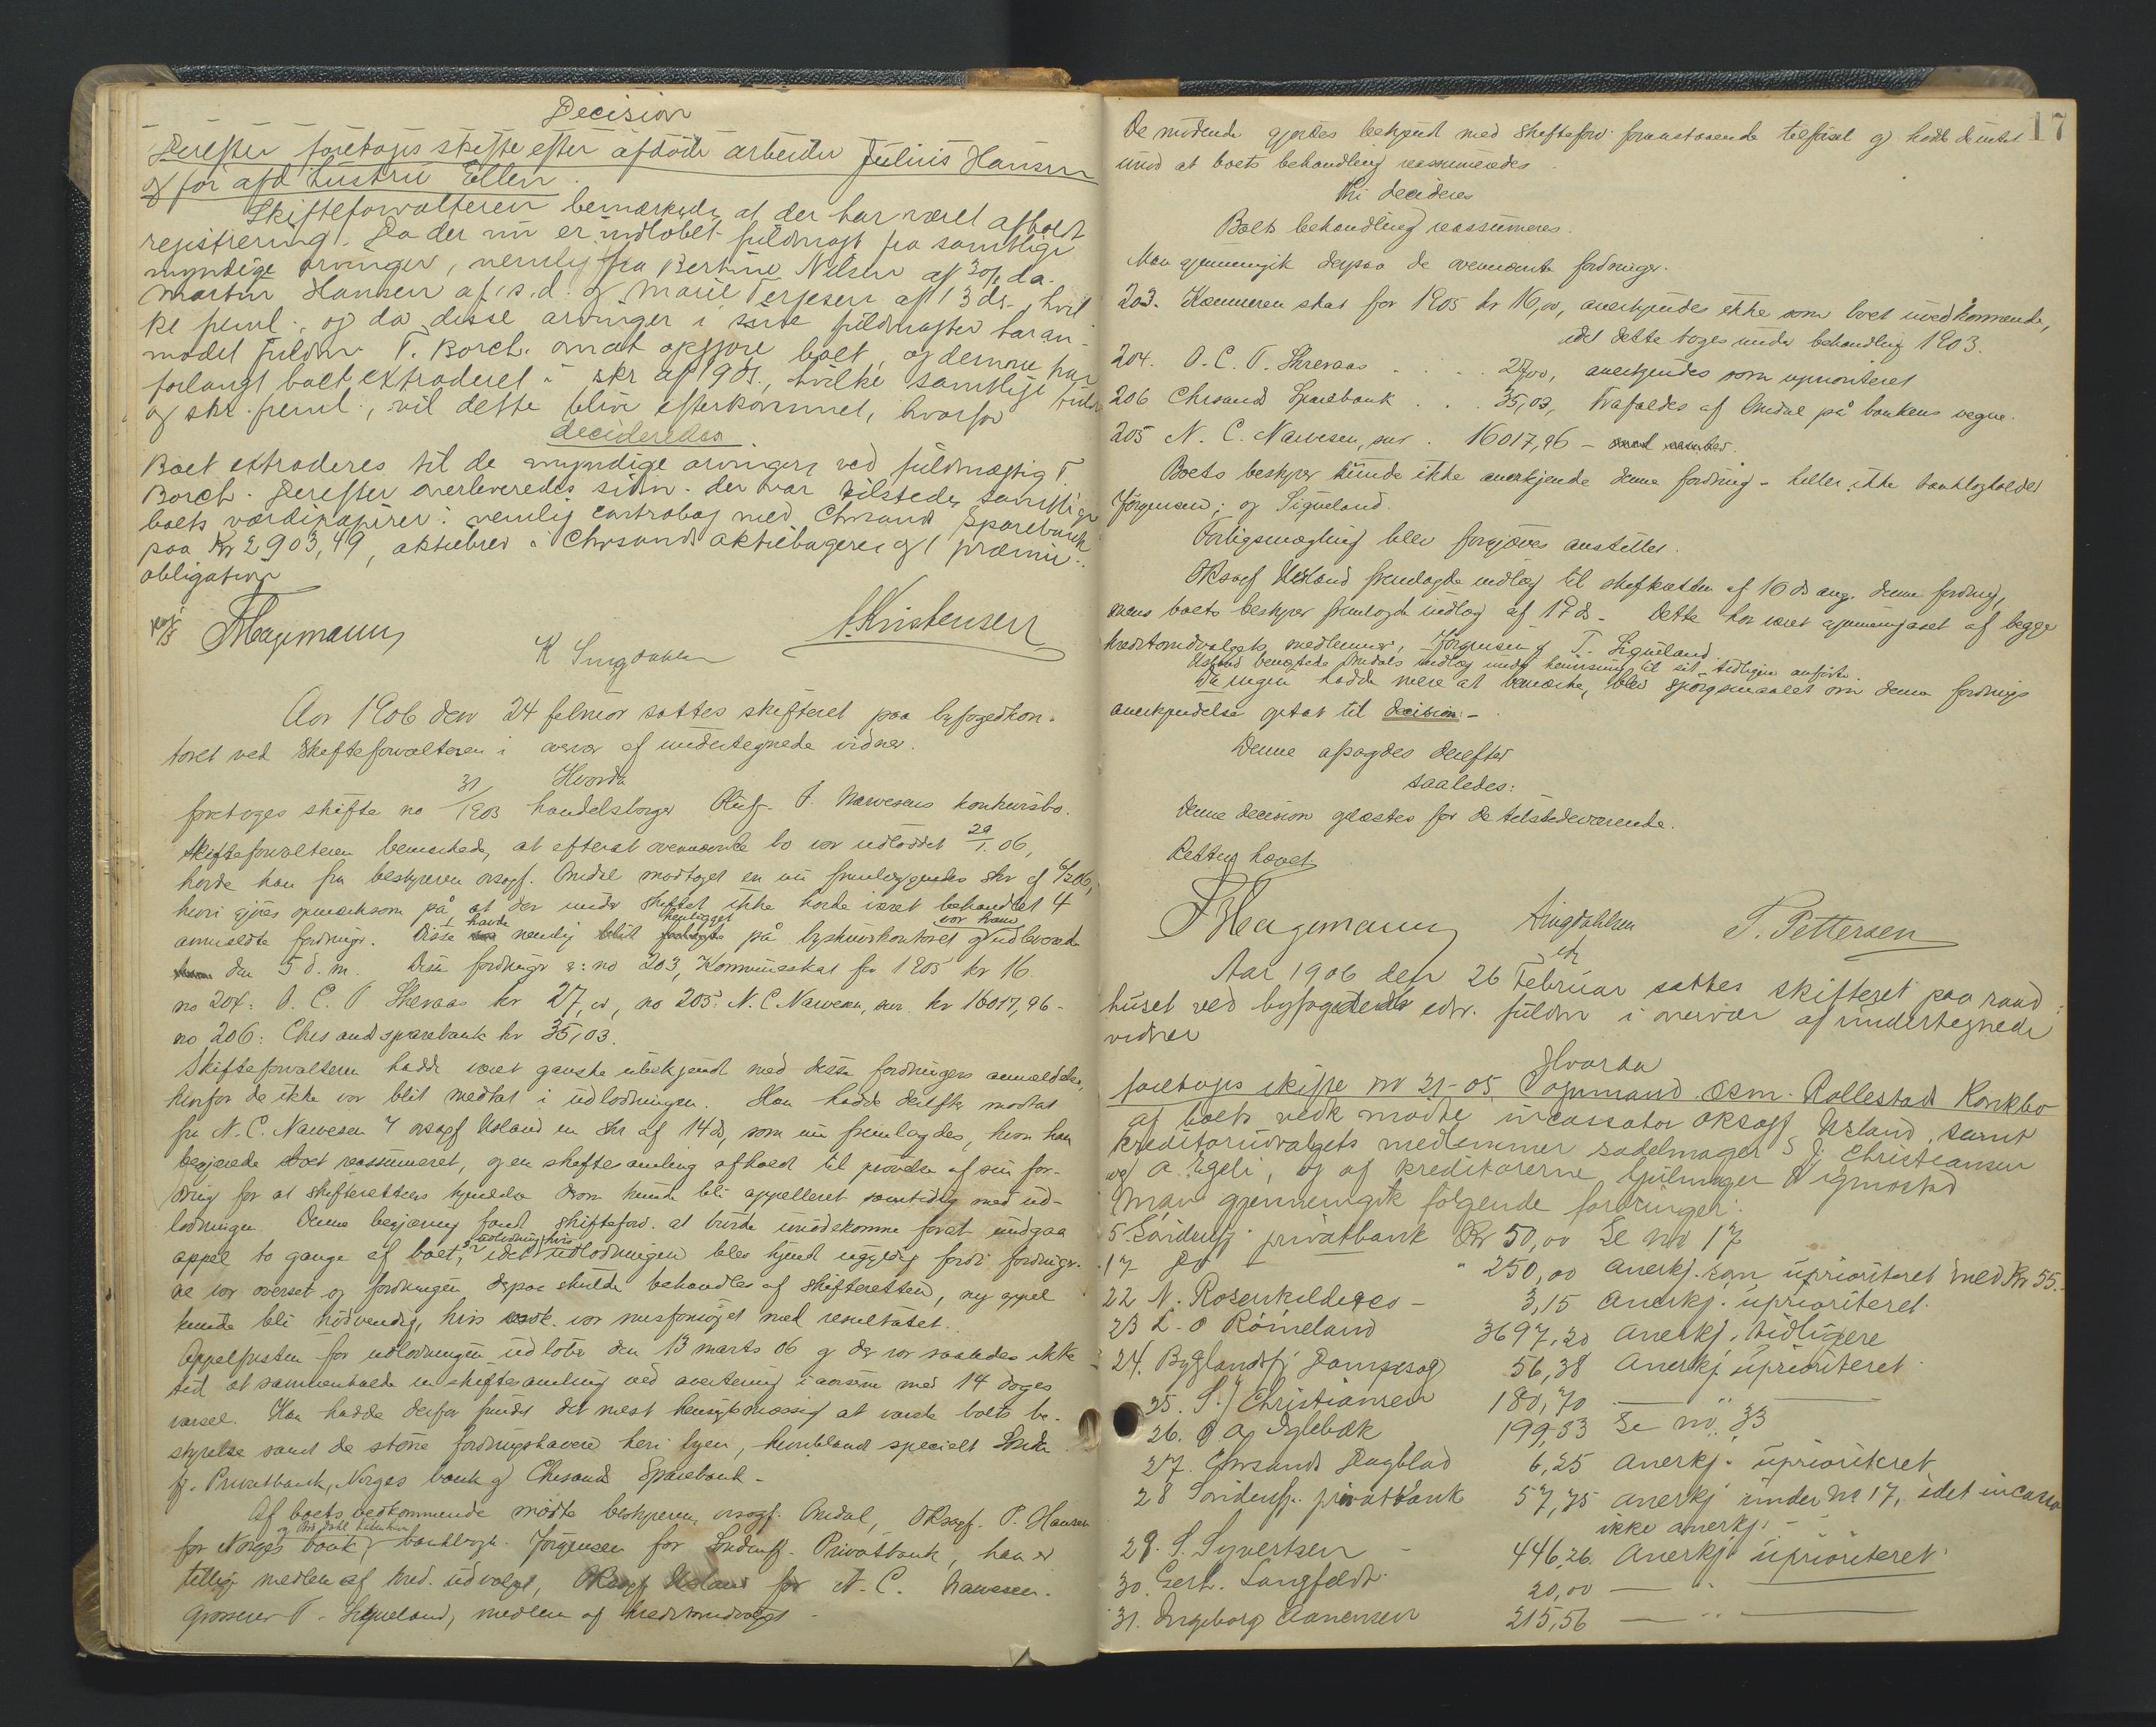 Decision
Derefter foretoges skifte efter afdöde arbeider Julius Hansen
ogför afd hustru Ellen.
Skifteforvalteren bemærkede, at der har været afholdt
registrering. Da der nu er indlöbet fuldmagt fra samtlige
myndige arvinger, nemlig fra Bertine Nilsen af 30/1 d.a.
Martin Hansen af s.d. og Marie Terjesen af 13 ds., hvil-
ke freml., og da disse arvinger i sine fuldmagter har an-
modet fuldm. T. Borch. om at opgjöre boet, og denne har
forlangt boet extraderet i skr af 1905., hvilke samtlige fuldm
og skr. freml., vil dette blive efterkommet, hvorfor
decideredes
Boet extraderes til de myndige arvinger ved fuldmægtig T.
Borch. Derefter overleveredes sidn. der var tilstede, samtlige
boets værdipapirer: nemlig contrabog med Chrsands Sparebank
paa Kr 2903,49, aktiebrev i Chrsands aktiebageri og 1 præmie-
obligation
FHagemann
K Lingdahlsen
A. Kristensen
Aar 1906 den 24 februar sattes skifteret paa byfogedkon-
toret ved Skifteforvalteren i overvær af undertegnede vidner.
Hvorda
foretoges skifte no 31/1903 handelsborger Oluf P. Narvesens konkursbo.
Skifteforvalteren bemærkede, at efterat ovennævnte bo var udloddet 29/1. 06,
havde han fra bestyreren orsagf. Omdal modtaget en nu fremlæggendes skr af 6/2 06,
hvori gjøres opmærksom på, at der under skiftet ikke havde været behandlet 4
anmeldte fordringer. Disse havde nemlig blit henlagget på byskriverkontoret og var ham udleveredt
den 5 d.m. Disse fordringer er: no 203, Kommuneskat for 1905 kr 16.
no 204: O. C. T Skeraas kr 27,00, no 205: N. C. Narvesen, sen. kr 16017,96 -
no 206: Chrsands sparebank kr 35,03.
Skifteforvalteren hadde været ganske ubekjendt med disse fordringers anmeldelse,
hvorfor de ikke var blit medtat i udlodningen. Han hadde derefter modtat
fra N. C. Narvesen v orsagf Usland en skr af 14 ds, som nu fremlagdes, hvori han
begjærede boet reassumeret, og en skiftesamling afholdt til prövelse af sin for-
dring for at skifterettens kjendelse derom kunde bli appelleret samtidig med ud-
lodningen. Denne begjæring fandt skifteforv. at burde imödekomme forat undgaa
appel to gange af boet, idet udlodning, hvis udlodningen blev kjendt ugyldig fordi fordringer-
ne var overset og fordringen derpaa skulde behandles af skifteretten, ny appel
kunde bli nödvendig, hvis vedk. var misfornöiet med resultatet.
Appelfristen for udlodningen udlöber den 13 marts 06 og der var saaledes ikke
tid at sammenkalde en skiftesamling ved avertering i aviserne med 14 dages
varsel. Han hadde derfor fundet det mest hensigtsmæssig at varsle boets be-
styrelse samt de större fordringshavere heri byen, hvoriblandt specielt Sönden-
fj. Privatbank, Norges bank og Chrsands Sparebank -
Af boets vedkommende mödte bestyreren orsagf. Omdal, ORsagf. P. Hansen
for Norges bank og bankbogh. Jörgensen for Söndenfj. Privatbank, han er
tillige medlem af kred. udvalget, ORsagf Usland for N. C. Narvesen.
Grosserer T. Sigveland, medlem af kreditorudvalget -
17
De mödende gjordes bekjendt med skifteforv. foranstaaende tilförsel og hadde de intet
imod at boets behandling reassumeredes.
Thi decideres
Boets behandling reassumeres.
Man gjennemgik derpaa de ovennævnte fordringer.
203. Kæmneren skat for 1905 kr 16,00, anerkjendes ikke som boet uvedkommende,
idet dette toges under behandling 1903.
204. O. C. T. Skeraas . . . . 27,00, anerkjendes som uprioriteret
206 Chrsands Sparebank . . . 35,03, frafaldes af Omdal på bankens vegne.
205 N. C. Narvesen, sen. . 16017,96 -
Boets bestyrer kunde ikke anerkjende denne fordring - heller ikke bankbogholder
Jörgensen; og Sigveland.
Forligsmægling blev forgjæves anstillet.
ORsagf Usland fremlagde indlæg til skifteretten af 16 ds ang. denne fordring,
mens boets bestyrer fremlagde indlæg af 17 ds. Dette har været gjennemgaaet af begge
kreditorudvalgets medlemmer, Jörgensen og T. Sigveland.
Usland benægtede Omdals indlæg under henvisning til sit tidligere anförte.
Da ingen hadde mere at bemærke, blev spörgsmaalet om denne fordrings
anerkjendelse optat til decision. -
Denne afsagdes derefter
saaledes:
Denne decision oplæstes for de tilstedeværende.
Retten hævet
FHagemann
Lingdahlsen
T. Pettersen
Aar 1906 den 26 Februar sattes skifteret paa raad-
huset ved byfogedens edsv. fuldm i overvær af undertegnede
vidner
Hvorda
foretoges skifte no 21-05 Kjöpmand Osm. Rollestads Konkbo
af boets vedk mödte incassator ORsagf Usland, samt
kreditorudvalgets medlemmer sadelmager S. J. Christiansen
og A. Egeli, og af kreditorerne hjulmager Vigmostad
Man gjennemgik følgende fordringer:
5. Söndenfj. privatbank Kr 50,00 Se no 17
17 do " 250,00 Anerkj. som uprioriteret med Kr 55.-
22 N. Rosenkilde & Co - 3,15 Anerkj. uprioriteret.
23 L. O Römeland 3697,20 Anerkj. tidligere
24. Byglandsfj Dampsag 56,38 Anerkj. uprioriteret.
25. S. J Christiansen 180,70 — " —
26. O. A. Eglebæk 199,53 Se no. 33
27. Chrsands Dagblad 6,25 Anerkj. uprioriteret
28 Söndenfj. privatbank 57,75 anerkj under No 17, idet incasso
ikke anerkj. -
29. S. Syvertsen - 446,26. Anerkj. uprioriteret.
30. Gerh. Langfeldt 20,00 — " —
31. Ingeborg Aanensen 215,56 — " —